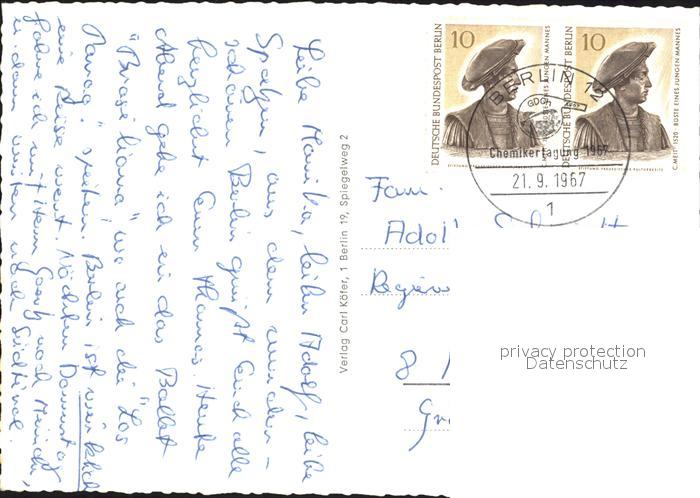 Liebe Monika, lieber Adolf, liebe
Spatzen, aus dem wunder-
schönen Berlin grüßt Euch alle
herzlichst Eure Thomas. Heute
Abend gehe ich in das Ballet
"Brasiliana" wo auch die "Los
Paraguay" spielen. Berlin ist wirklich
eine Reise wert. Nächsten Donnerstag
fahre ich mit Horn Georg nach München,
u. dann weiter nach Südtirol.
Verlag Carl Köfer, 1 Berlin 19, Spiegelweg 2
10
DEUTSCHE BUNDESPOST BERLIN
BÜSTE EINES JUNGEN MANNES
10
DEUTSCHE BUNDESPOST BERLIN
C. MEIT · 1520 · BÜSTE EINES JUNGEN MANNES
STIFTUNG PREUSSISCHER KULTURBESITZ
BERLIN 12
GDCh
Chemikertagung 1967
21.9.1967
1
Fam.
Adol
Regier
8
privacy protection
Datenschutz